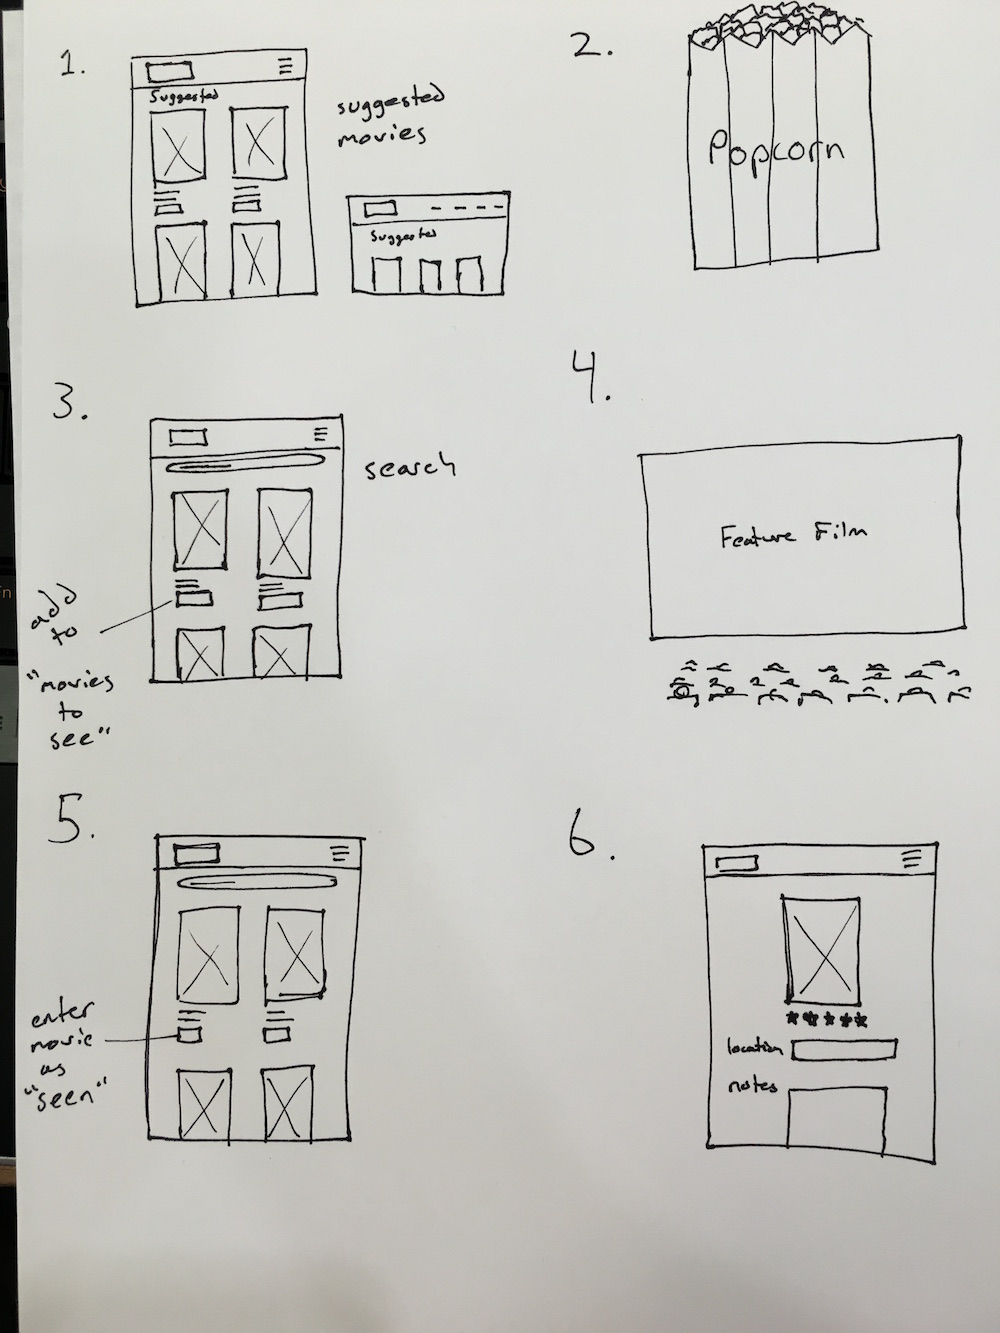 1.
Suggested
suggested
movies
Suggested
2.
Popcorn
3.
search
add
to
"movies
to
see"
4.
Feature Film
5.
enter
movie
as
"seen"
6.
location
notes